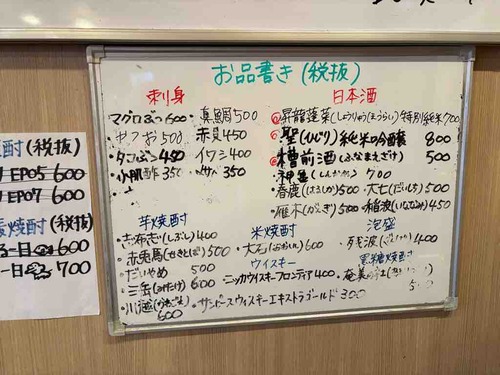 お品書き(税抜)
刺身
マグロぶつ600
・真鯛500
やつお500
・赤貝450
・タコぶつ450
・イワシ400
・小肌酢350
350
日本酒
昇龍蓬莱(しょうりゅうほうらい)特別純米700
聖(ひじり)純米吟醸 800
槽前酒(ふなまえざけ) 500
神亀(しんかめ) 700
・春鹿(はるしか)500
・大七(だいしち)500
・雁木(がんぎ)500
・稲波(いななみ)450
芋焼酎
・志布志(しぶし)400
・赤兎馬(せきとば)500
・だいやめ 500
・三岳(みたけ)600
・川越(かわごえ)600
米焼酎
・大石(おおいし)600
ウイスキー
・ニッカウイスキーフロンティア400
・サントリーウイスキーエキストラゴールド300
泡盛
・残波(ざんぱ)400
黒糖焼酎
・奄美の杜
耐(税抜)
EP05 600
EP07 600
焼酎(税抜)
600
700